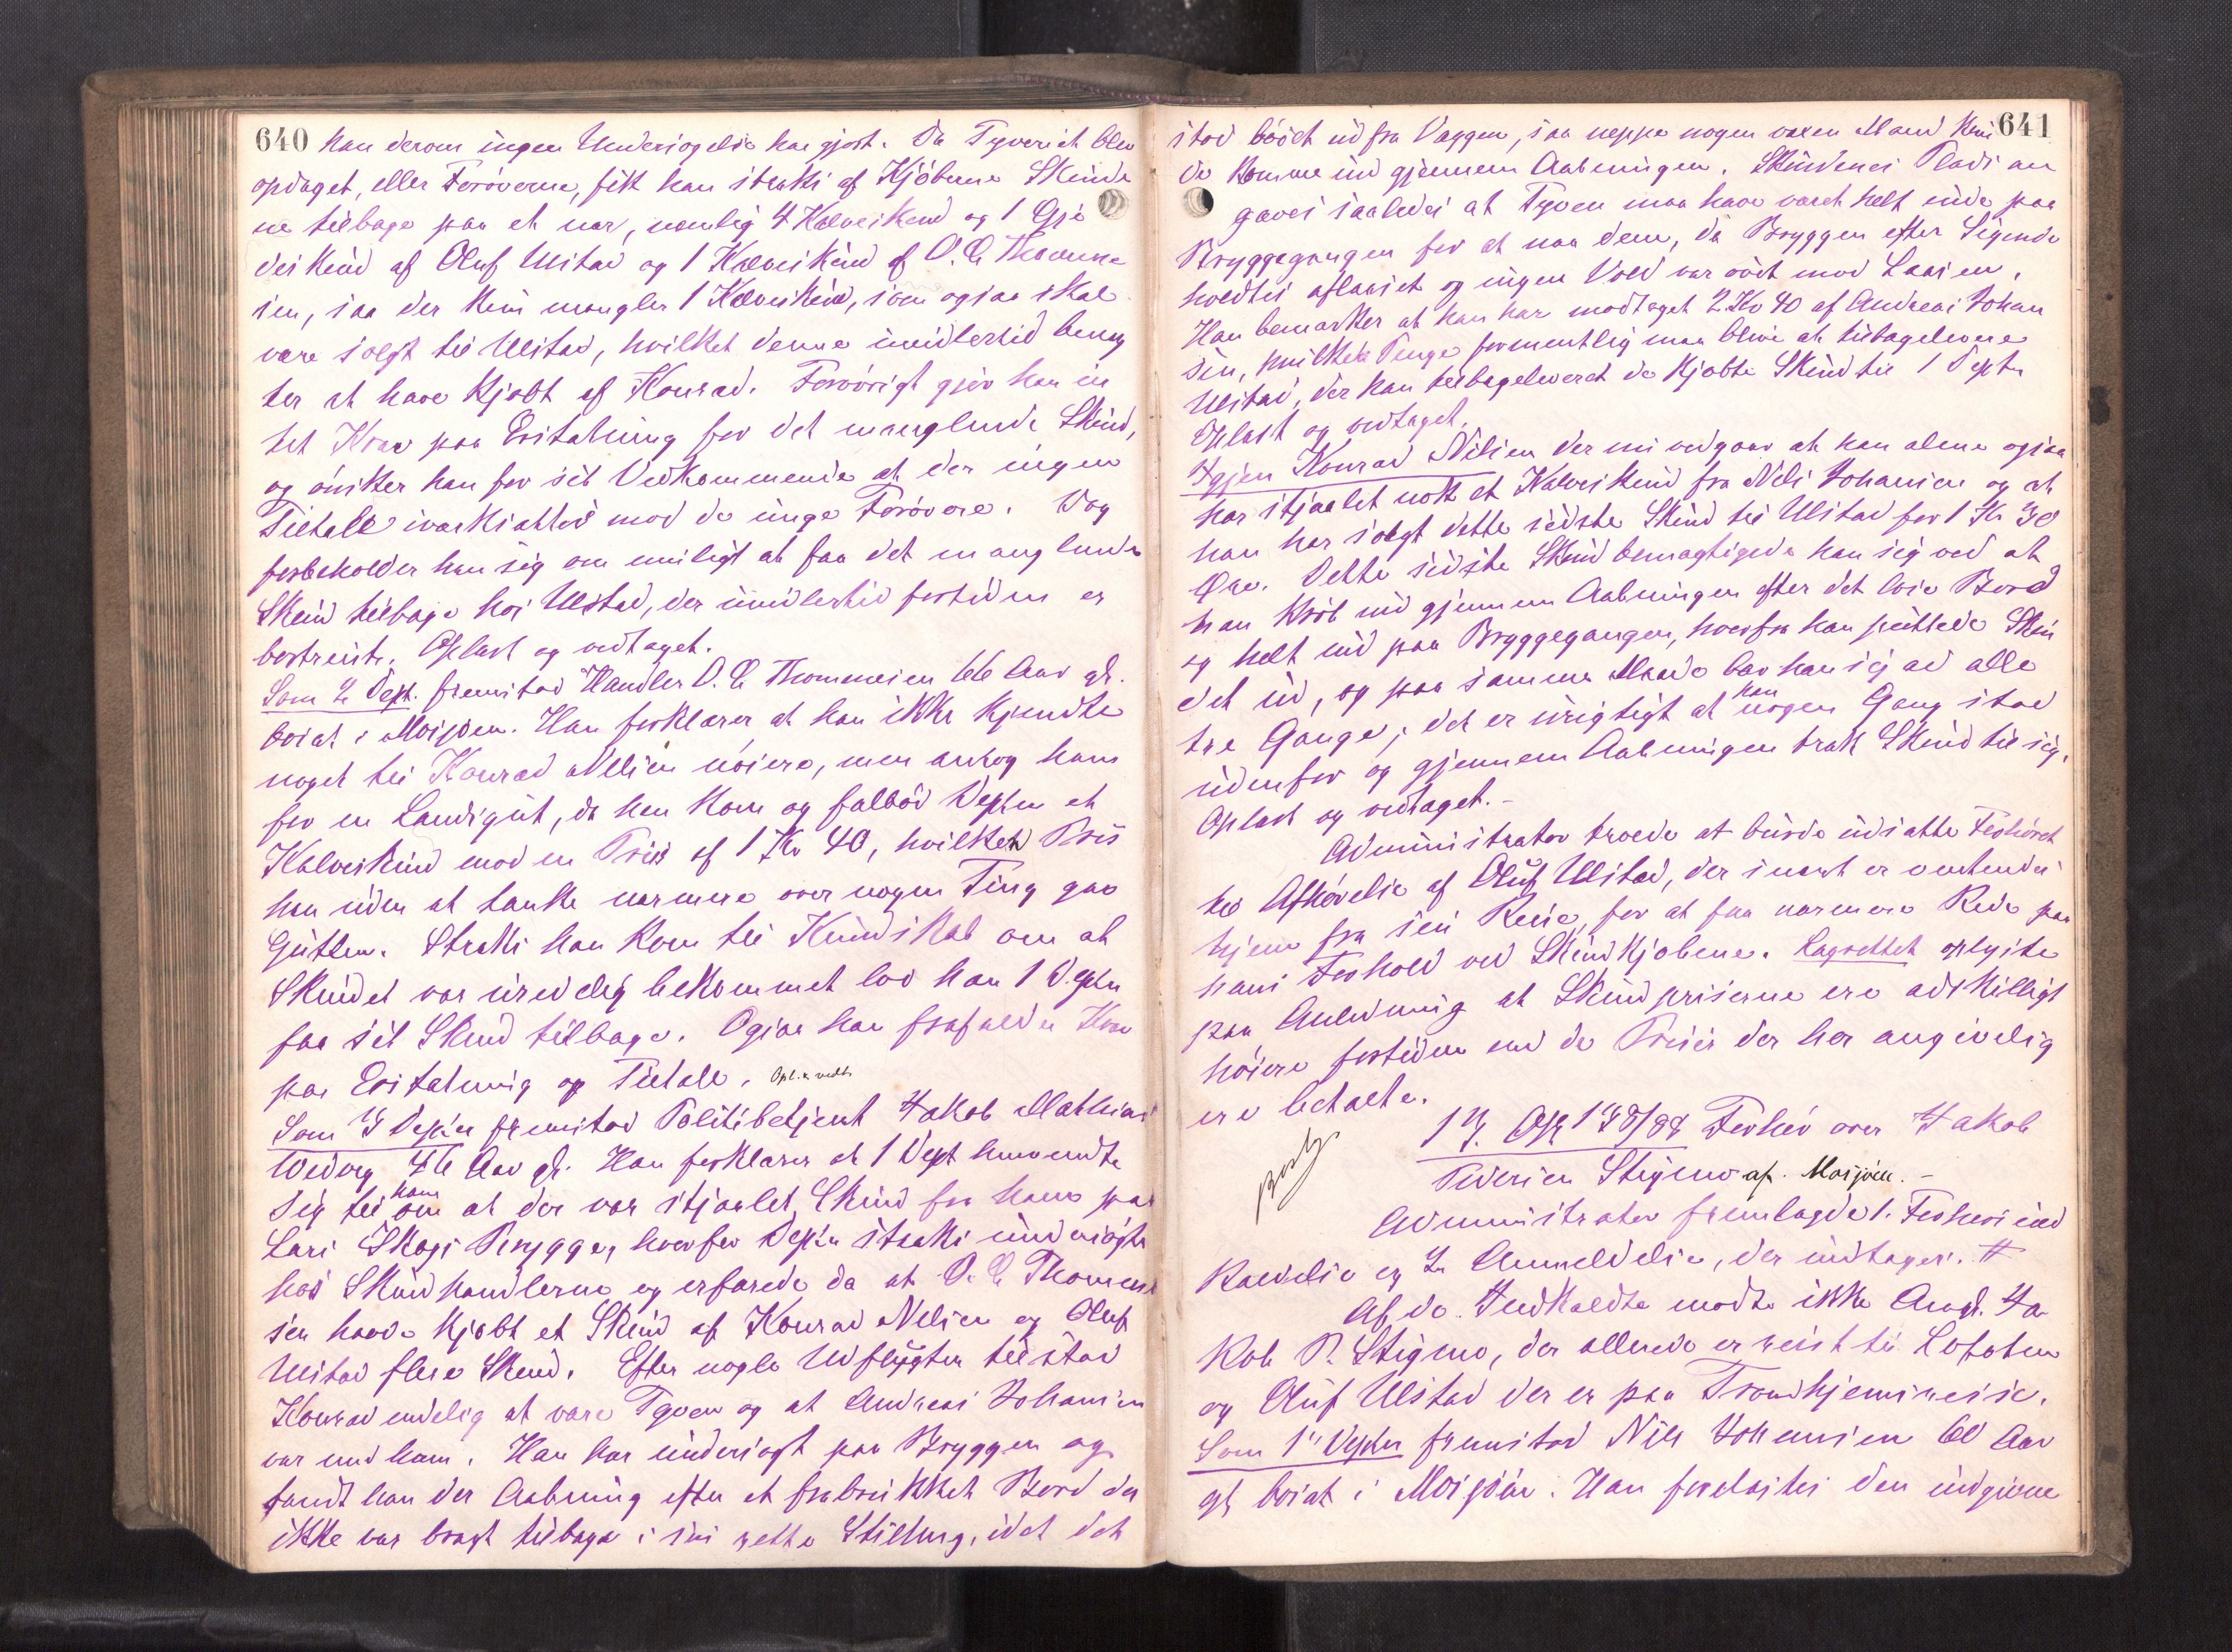 640 han derom ingen Undersøgelse har gjort. Da Tyveriet blev
opdaget, eller Forøverne, fik han straks af Kjøberne Skinde
ne tilbage paa et nær, nemlig 4 Kalveskind og 1 Gje
deskind af Oluf Ulstad og 1 Kalveskind af O. C. Thommes
sen, saa der kun mangler 1 Kalveskind, som ogsaa skal
være solgt til Ulstad, hvilket denne imidlertid beneg
ter at have kjøbt af Konrad. Forøvrigt gjør han in
tet Krav paa Erstatning for det manglende Skind,
og ønsker han for sit Vedkommende at der ingen
Tiltale iværksættes mod de unge Forøvere. Dog
forbeholder han sig om muligt at faa det manglende
Skind tilbage hos Ulstad, der imidlertid fortiden er
bortreist. Oplæst og vedtaget.
Som 2 Dept. fremstod Handler O. C. Thommesen 66 Aar gl.
bosat i Mosjøen. Han forklarer at han ikke kjendte
noget til Konrad Nilsen nøiere, men antog ham
for en Landsgut, da han kom og falbød Depten et
Kalveskind mod en Pris af 1 Kr 40, hvilken Pris
han uden at tænke nærmere over nogen Ting gav
Gutten. Straks han kom til Kundskab om at
Skindet var uredelig bekommet lod han 1 Depten
faa sit Skind tilbage. Ogsaa han frafalder Krav
paa Erstatning og Tiltale. Opl. & vedt.
Som 3 Depten fremstod Politibetjent Jakob Mathias
Wedvog 46 Aar gl. Han forklarer at 1 Dept henvendte
sig til ham om at der var stjaalet Skind fra ham paa
Lars Skogs Brygge, hvorfor Depten straks undersøgte
hos Skindhandlerne og erfarede da at O. C. Thommes
sen havde kjøbt et Skind af Konrad Nilsen og Oluf
Ulstad flere Skind. Efter nogle Udflugter tilstod
Konrad endelig at være Tyven og at Andreas Johansen
var med ham. Han har undersøgt paa Bryggen og
fandt han der Aabning efter et frabrukket Bord der
ikke var bragt tilbage i sin rette Stilling, idet det
641
stod bøiet ud fra Væggen, saa neppe nogen voxen Mand kun
de komme ind gjennem Aabningen. Skindenes Plads an
gaves saaledes at Tyven maa have været helt inde paa
Bryggegangen for at naa dem, da Bryggen efter Sigende
holdtes aflaaset og ingen Vold var øvet mod Laasen.
Han bemærker at han har modtaget 2 Kr 40 af Andreas Johan
sen, hvilke Penge formentlig maa blive at tilbagelevere
Ulstad, der han tilbageleveret de kjøbte Skind til 1 Depten
Oplæst og vedtaget.
Igjen Konrad Nilsen der nu vedgaar at han alene ogsaa
har stjaalet nok et Kalveskind fra Nils Johansen og at
han har solgt dette sidste Skind til Ulstad for 1 Kr 30
Øre. Dette sidste Skind bemægtigede han sig ved at
han krøb ind gjennem Aabningen efter det løse Bord
og helt ind paa Bryggegangen, hvorfra han puttede Skin
det ud, og paa samme Maade bar han sig ad alle
tre Gange; det er urigtigt at han nogen Gang stod
udenfor og gjennem Aabningen trak Skind til sig.
Oplæst og vedtaget. -
Administrator troede at burde udsætte Forhøret
til Afhørelse af Oluf Ulstad, der snart er ventendes
hjem fra sin Reise, for at faa nærmere Rede paa
hans Forhold ved Skindkjøbene. Lagrettet oplyste
paa Anledning at Skindpriserne ere adskilligt
høiere fortiden end de Priser der her angivelig
ere betalte.
17. Opt 138/88 Forhør over Jakob
Pedersen Stigmo af Mosjøen. -
Administrator fremlagde 1. Forhørsind
kaldelse og 2. Anmeldelse, der indtages. #
Af de Indkaldte mødte ikke Ang. Ja
kob P. Stigmo, der allerede er reist til Lofoten
og Oluf Ulstad der er paa Trondhjemsreise.
Som 1" Depten fremstod Nils Johansen 60 Aar
gl. bosat i Mosjøen. Han forelæstes den indgivne